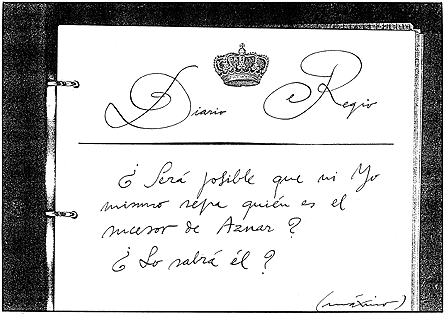 Diario Regio
¿Será posible que ni Yo
mismo sepa quién es el
sucesor de Aznar?
¿Lo sabrá él?
(máximo)